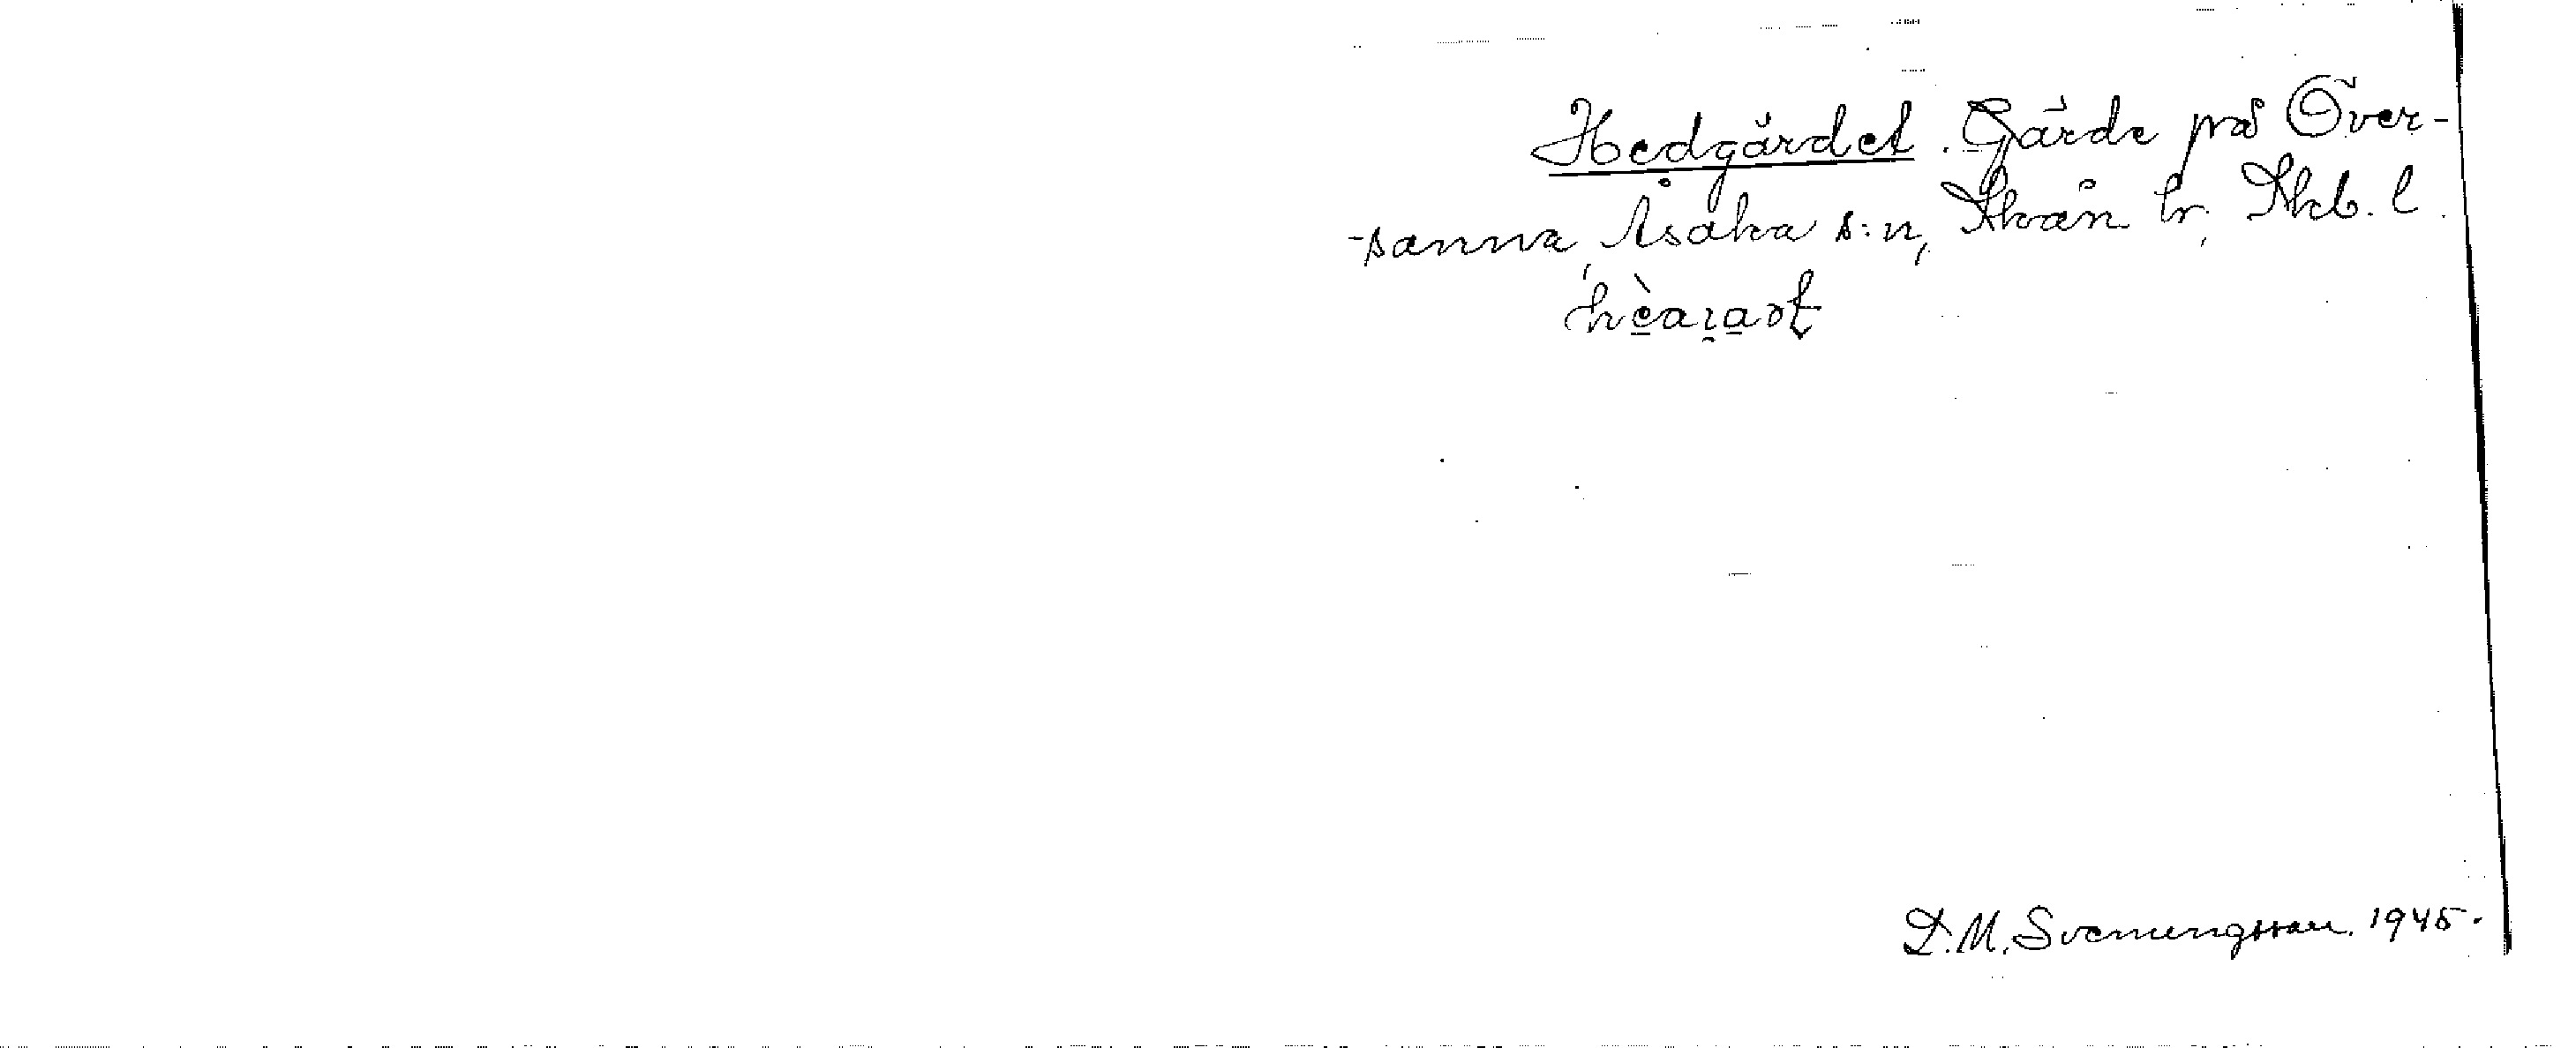 Hedgärdet. Gärde på Över-
-sanna, Åsaka s:n, Skån hr, Skb. l.
D. M. Svenungsson. 1945.